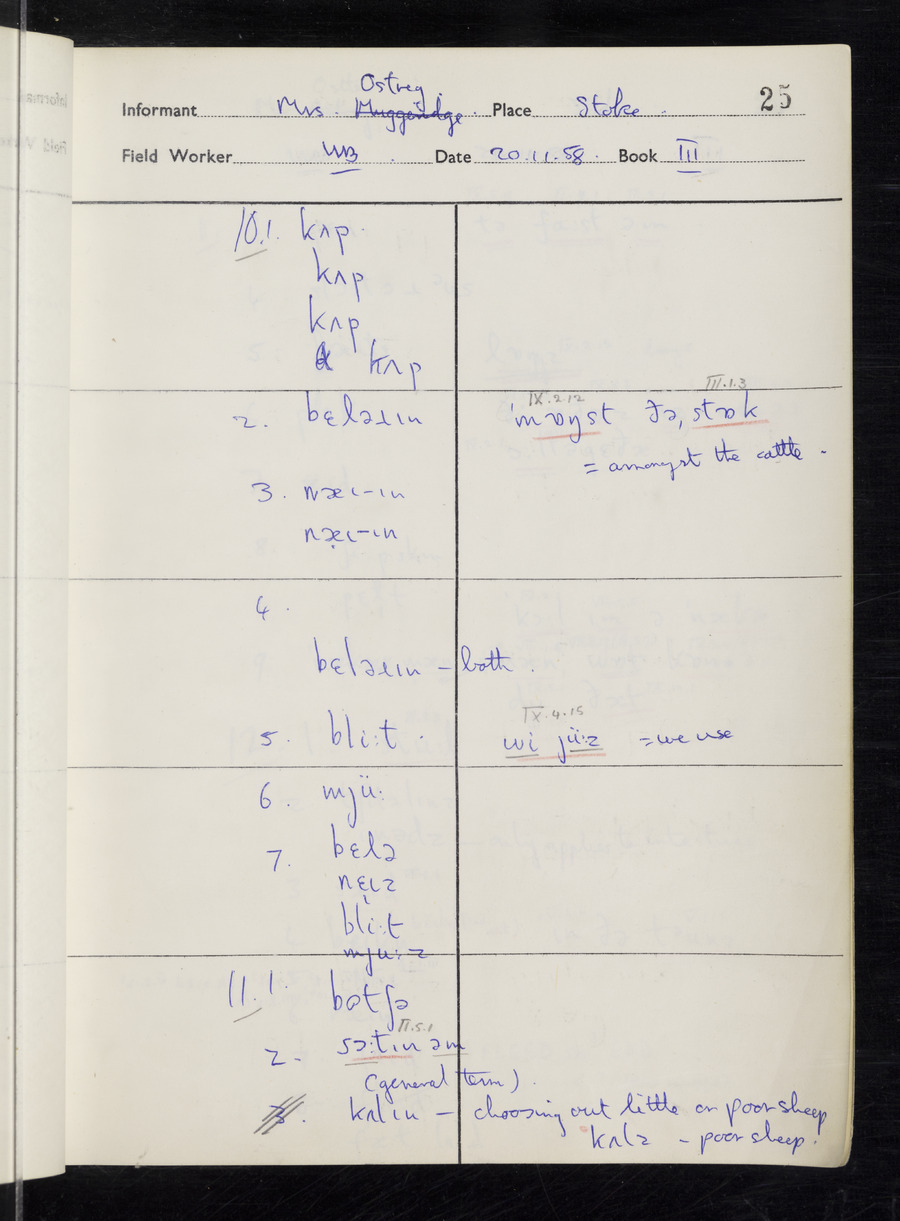 Ostrey.
Informant Mrs. Muggeridge. Place Stoke. 25
Field Worker WB. Date 20.11.58. Book III
10.1. kʌp.
kʌp
kʌp
kʌp
2. bɛləɪn
IX.2.12 III.1.3
'mɒŋst ðə, stɒk
= amongst the cattle.
3. næɪ-ɪn
næ̣ɪ-ɪn
4.
bɛləɪn – both.
5. bli:t.
IX.4.15
wi jü:z = we use
6. mjü:
7. bɛlə
nɛ̣ɪz
bli:t
mju:z
11.1. bɒtʃə
II.5.1
2. sɔ:tɪn əm
(general term).
3. kʌlɪn – choosing out little or poor sheep
kʌlz – poor sheep.